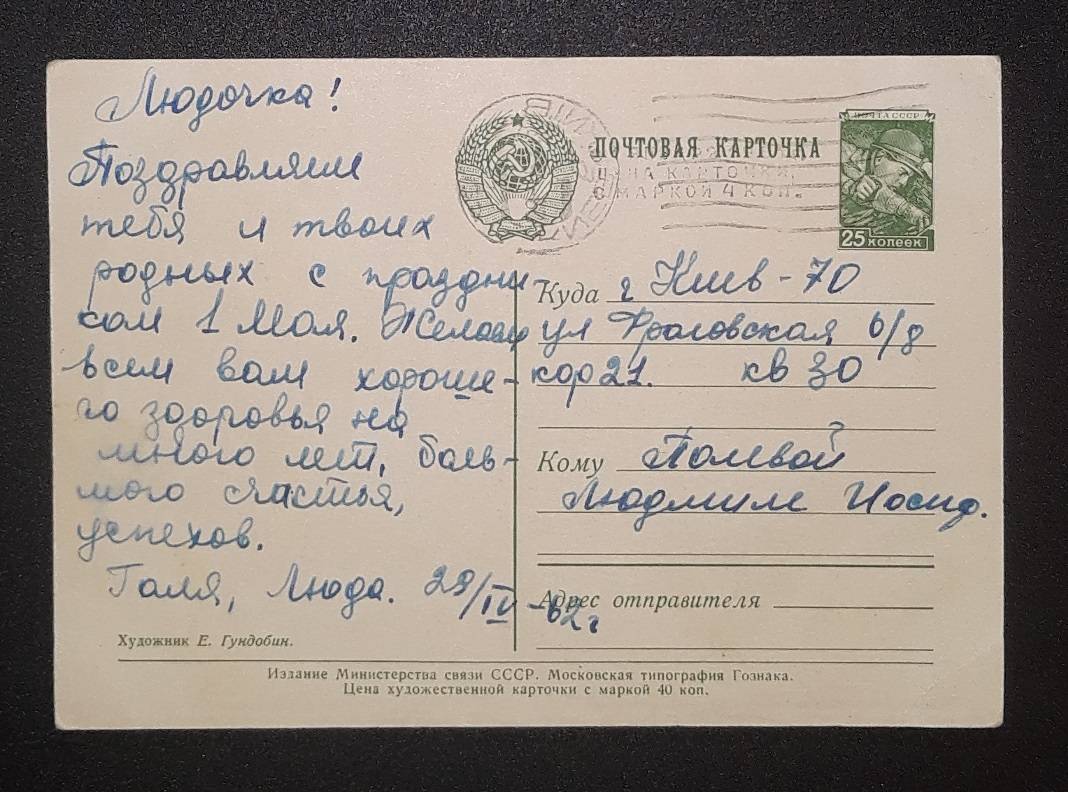 Людочка!
Поздравляем
тебя и твоих
родных с праздни
ком 1 Мая. Желаем
всем вам хороше-
го здоровья на
много лет, боль-
шого счастья,
успехов.
Галя, Люда. 29/IV-62г
Художник Е. Гундобин.
ПОЧТОВАЯ КАРТОЧКА
ЦЕНА КАРТОЧКИ
С МАРКОЙ 4 КОП.
ПОЧТА СССР
25 КОПЕЕК
Куда г Киев-70
ул Фроловская 6/8
кор 21. кв 30
Кому Полевой
Людмиле Иосиф.
Адрес отправителя
Издание Министерства связи СССР. Московская типография Гознака.
Цена художественной карточки с маркой 40 коп.